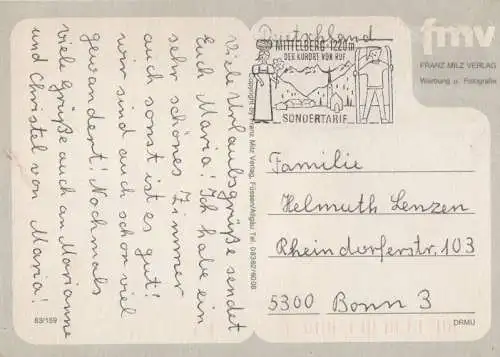 Viele Urlaubsgrüße sendet
Euch Maria! Ich habe ein
sehr schönes Zimmer
auch sonst ist es gut!
wir sind auch schon viel
gewandert! Nochmals
viele Grüße auch an Marianne
und Christel von Maria!
63/159
Copyright by Franz Milz Verlag, Füssen/Allgäu Tel. 08362/6208
Deutschland
MITTELBERG 1220m
DER KURORT VON RUF
SONDERTARIF
fmv
FRANZ MILZ VERLAG
Werbung u. Fotografie
Familie
Helmuth Lenzen
Rheindorferstr. 103
5300 Bonn 3
DRMU